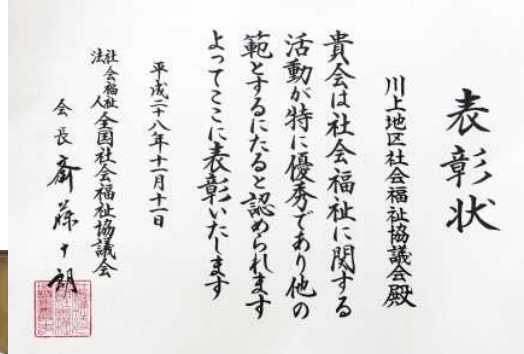 表彰状
川上地区社会福祉協議会殿
貴会は社会福祉に関する
活動が特に優秀であり他の
範とするにたると認められます
よってここに表彰いたします
平成二十八年十一月十一日
社会福祉法人全国社会福祉協議会
会長 斎藤十朗